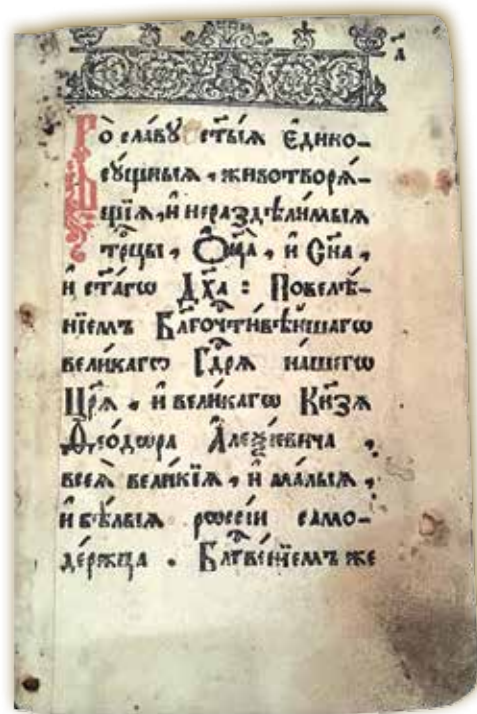 а҃
Во̀ сла́вꙋ ст҃ы́ѧ є҆дино-
сꙋ́щныѧ, животворѧ́-
щїѧ, и҆ нераздѣли́мыѧ
трⷪ҇цы, Ѻ҆ц҃а̀, и҆ Сн҃а,
и҆ ст҃а́гѡ Дх҃а : Повелѣ́-
нїемъ Бл҃гочⷭ҇ти́вѣйшагѡ
вели́кагѡ Гдⷭ҇рѧ на́шегѡ
Цр҃ѧ̀. и҆ вели́кагѡ Кнѧ́зѧ
Ѳео́дѡра А҆леѯі́евича,
всеѧ̀ вели́кїѧ, и҆ ма́лыѧ,
и҆ бѣ́лыѧ рѡссі́и само-
де́ржца. Блⷭ҇ве́нїемъ же